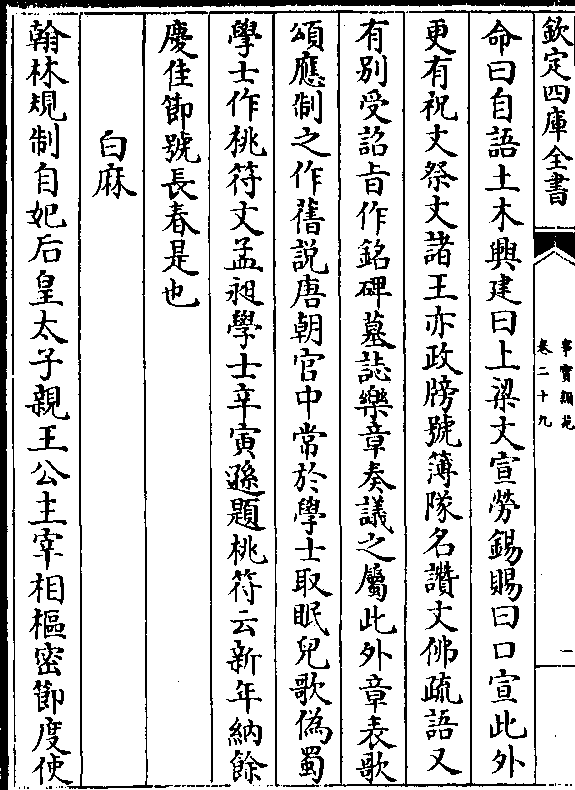 欽定四庫全書
事實類苑
卷二十九
一
命曰自語土木興建曰上梁文宣勞錫賜曰口宣此外
更有祝文祭文諸王亦政牓號簿隊名讚文佛疏語又
有别受詔旨作銘碑墓誌樂章奏議之屬此外章表歌
頌應制之作舊説唐朝官中常於學士取眠兒歌偽蜀
學士作桃符文孟昶學士辛寅遜題桃符云新年納餘
慶佳節號長春是也
白麻
翰林規制自妃后皇太子親王公主宰相樞密節度使